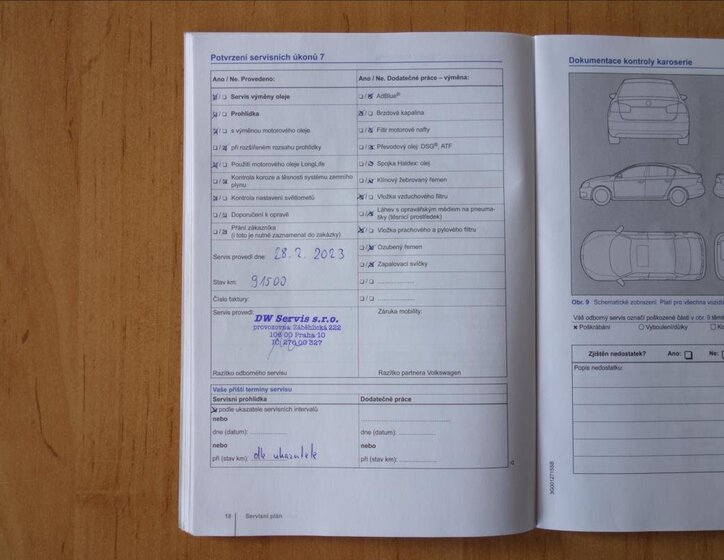 Potvrzení servisních úkonů 7
Ano / Ne. Provedeno:
Servis výměny oleje
Prohlídka
s výměnou motorového oleje
při rozšířeném rozsahu prohlídky
Použití motorového oleje LongLife
Kontrola koroze a těsnosti systému zemního
plynu
Kontrola nastavení světlometů
Doporučení k opravě
Přání zákazníka
(i toto je nutné zaznamenat do zakázky)
Servis provedl dne: 28.2.2023
Stav km: 91500
Číslo faktury:
Servis provedl:
DW Servis s.r.o.
provozovna: Záběhlická 222
106 00 Praha 10
IČ: 276 09 327
Razítko odborného servisu
Ano / Ne. Dodatečné práce – výměna:
AdBlue®
Brzdová kapalina
Filtr motorové nafty
Převodový olej: DSG®, ATF
Spojka Haldex: olej
Klínový žebrovaný řemen
Vložka vzduchového filtru
Láhev s opravářským médiem na pneuma-
tiky (těsnicí prostředek)
Vložka prachového a pylového filtru
Ozubený řemen
Zapalovací svíčky
Záruka mobility:
Razítko partnera Volkswagen
Vaše příští termíny servisu
Servisní prohlídka
podle ukazatele servisních intervalů
nebo
dne (datum):
nebo
při (stav km): dle ukazatele
Dodatečné práce
nebo
dne (datum):
nebo
při (stav km):
18 Servisní plán
Dokumentace kontroly karoserie
Obr. 9 Schematické zobrazení. Platí pro všechna vozidla
Váš odborný servis označí poškozené části v obr. 9 těmi
Poškrábání
Vyboulení/důlky
Zjištěn nedostatek? Ano: Ne:
Popis nedostatku:
3G0012715SB